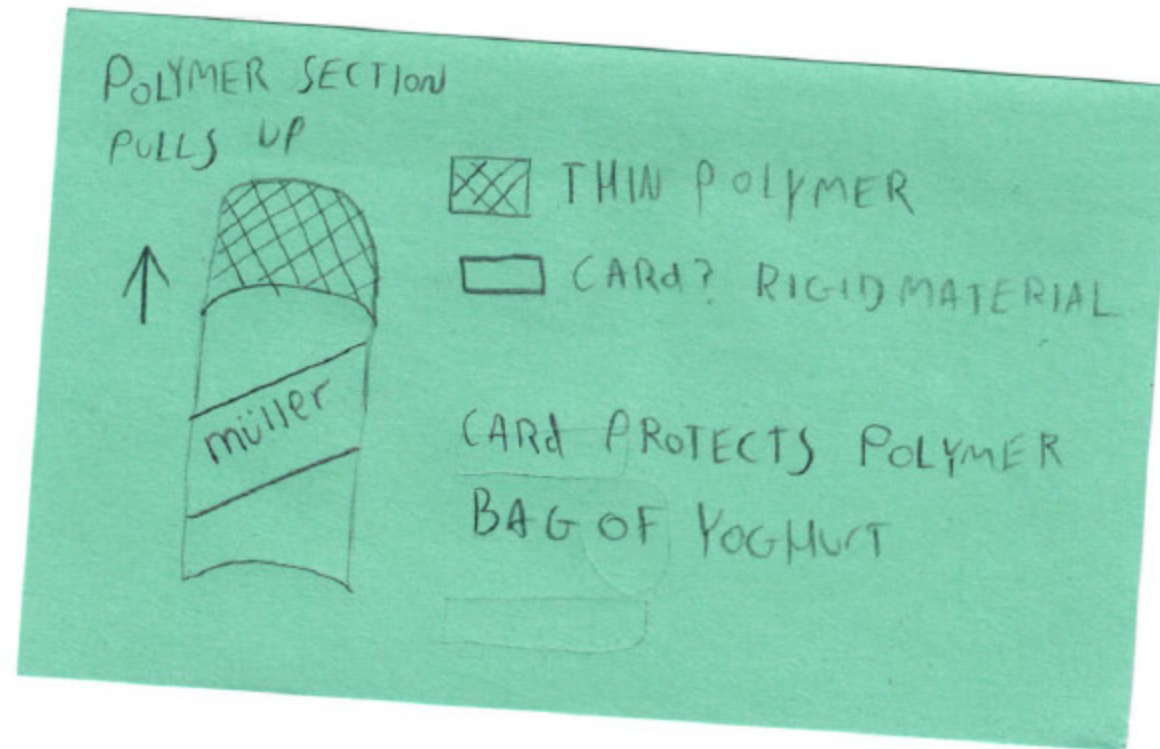 POLYMER SECTION
PULLS UP
THIN POLYMER
CARd? RIGID MATERIAL
müller
CARd PROTECTS POLYMER
BAG OF YOGHURT